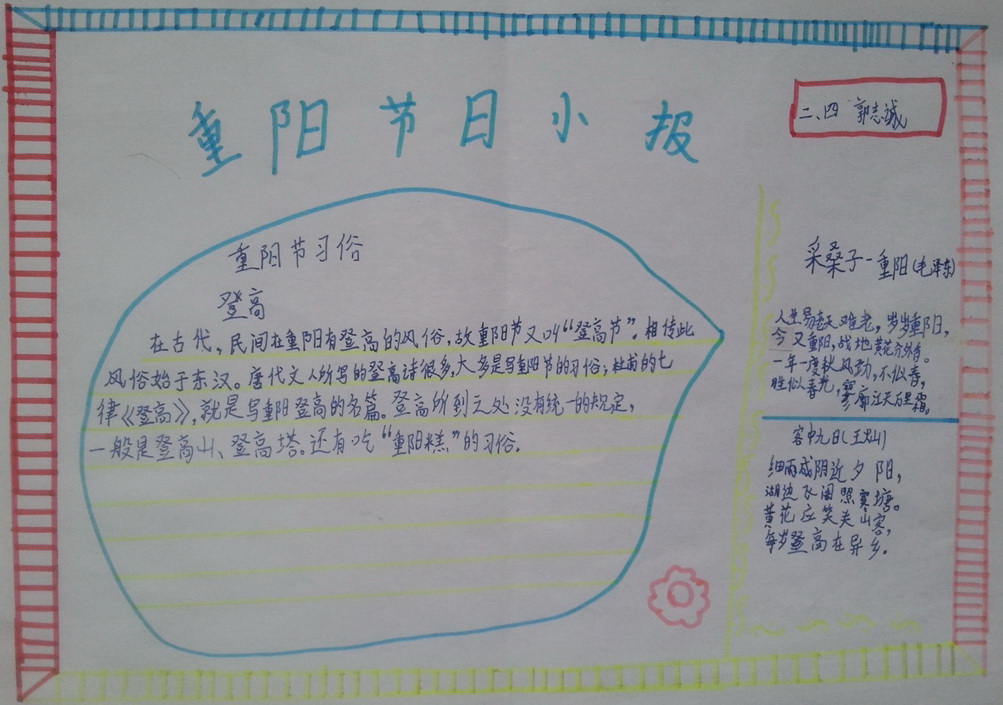 重阳节日小报
二、四 郭志诚
重阳节习俗
登高
在古代，民间在重阳有登高的风俗，故重阳节又叫“登高节”。相传此
风俗始于东汉。唐代文人所写的登高诗很多，大多是写重阳节的习俗；杜甫的七
律《登高》，就是写重阳登高的名篇。登高所到之处没有统一的规定，
一般是登高山、登高塔。还有吃“重阳糕”的习俗。
采桑子-重阳（毛泽东）
人生易老天难老，岁岁重阳，
今又重阳，战地黄花分外香。
一年一度秋风劲，不似春，
胜似春光，寥廓江天万里霜。
客中九日（王灿）
细雨成阴近夕阳，
湖边飞阁照寒塘。
黄花应笑关山客，
每岁登高在异乡。